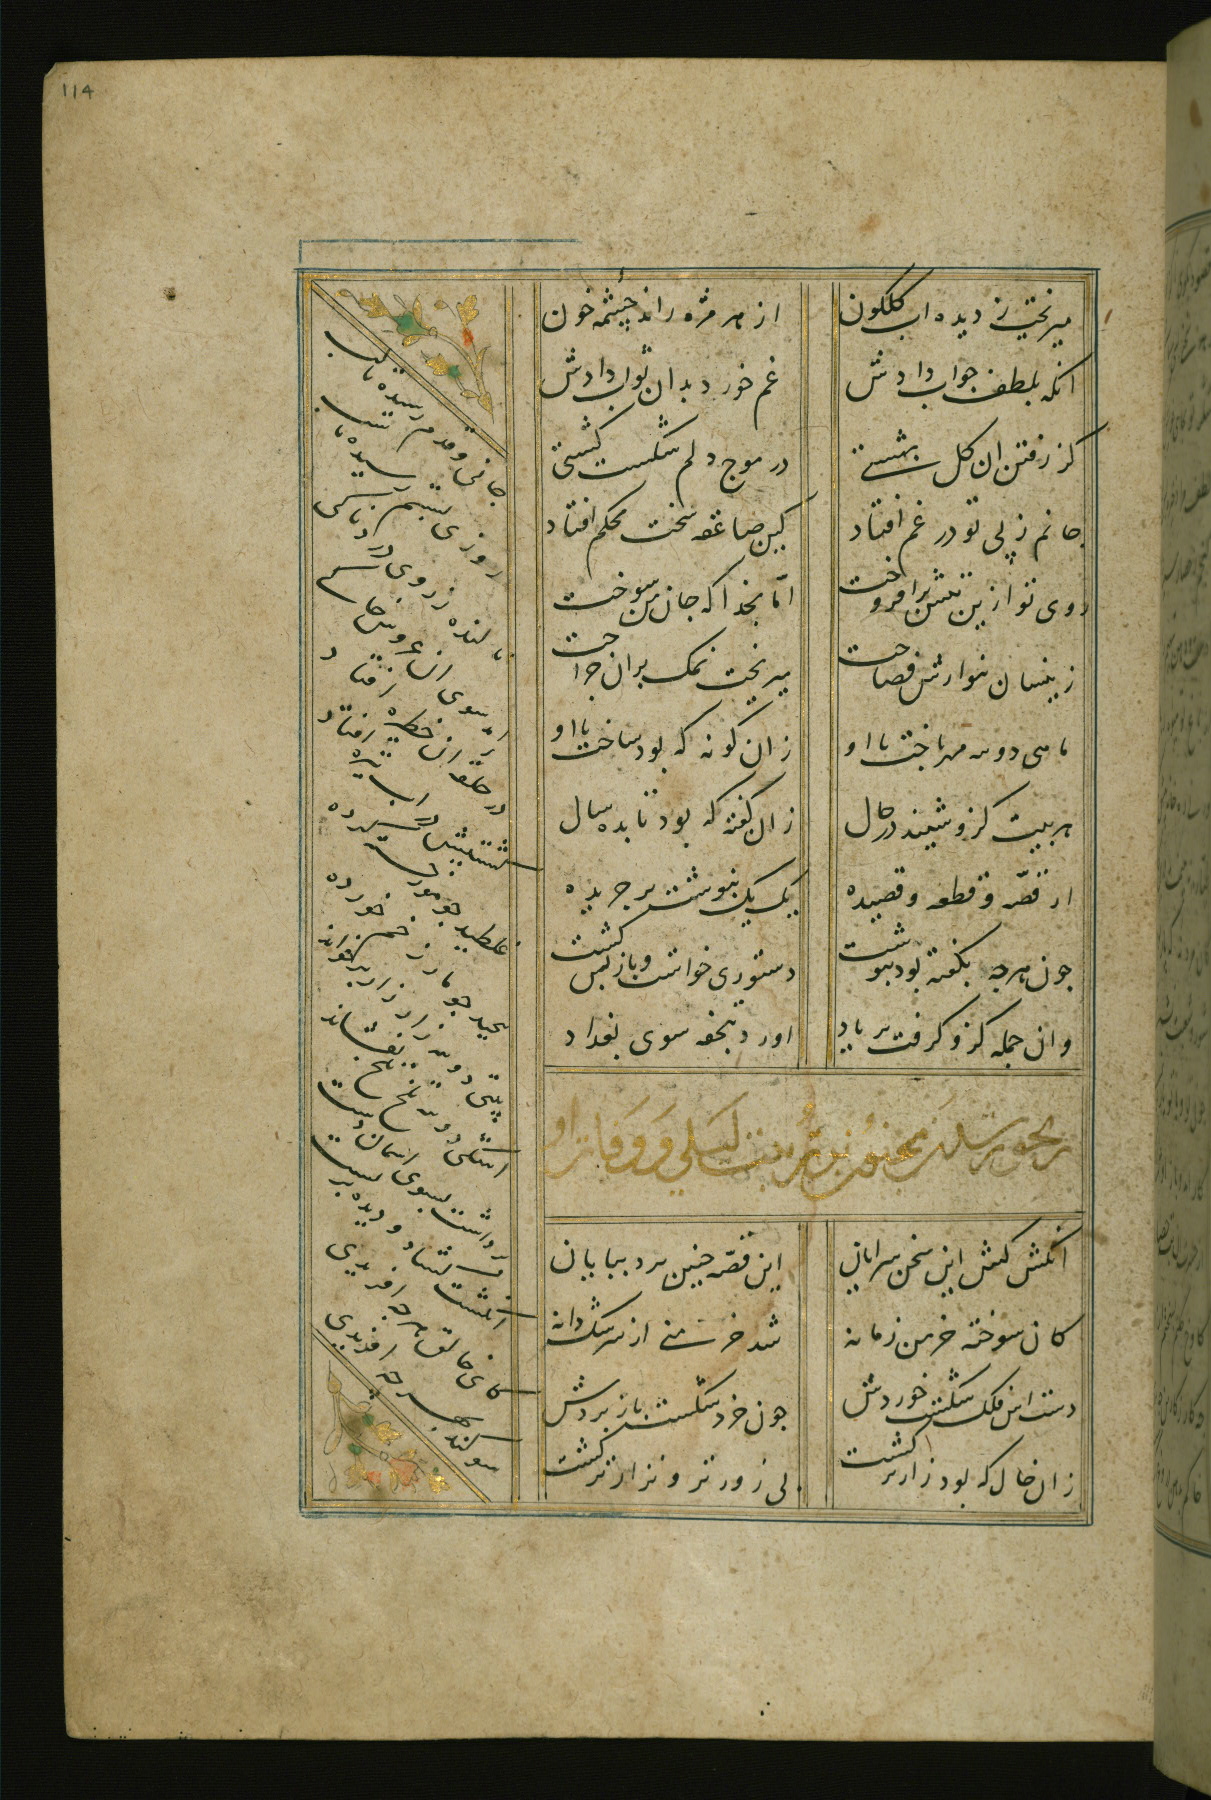 114
میریخت ز دیده اب کلکون
از هر مژه راند چشمه خون
انکه بلطف جواب دادش
غم خورد بدان ثواب دادش
کز رفتن ان کل بهشتی
در موج دلم شکست کشتی
جانم ز پی تو در غم افتاد
کین صاعقه سخت محکم افتاد
روی تو ازین تپش برافروخت
امّا بخدا که جان من سوخت
زینسان بنوازش فصاحت
میریخت نمک بران جراحت
ماهی دو سه مهر باخت با او
زان کونه که بود ساخت با او
هر بیت کزو شنید در حال
زان کفته که بود تا بده سال
از قصّه و قطعه و قصیده
یک یک بنوشت بر جریده
جون هرجه بکفته بود بنوشت
دستوری خواست و باز پس کشت
وان جمله کزو کرفت بر یاد
اورد بتحفه سوی بغداد
رنجور شدن مجنون بر تربت لیلی و وفات او
انکشت کش این سخن سرایان
این قصّه جنین برد بپایان
کان سوخته خرمن زمانه
شد خرمنی از سرشک دانه
دست اس فلک شکست خوردش
جون خرد شکست باز بردش
زان حال که بود زارتر کشت
بی زورتر و نزارتر کشت
جانی و قدم رسیده تا لب
روزی بستم رسیده تا شب
نالنده ز روی دردناکی
امد سوی ان عروس خاکی
در حلقه ان حظیره افتاد
کشتیش در اب تیره افتاد
غلطید جو مور خسته کرده
پیچید جو مار زخم خورده
بیتی دو سه زار زار برخواند
اشکی دو سه تلخ تلخ بفشاند
برداشت بسوی اسمان دست
انکشت کشاد و دیده بربست
کای خالق هرجه افریدی
سوکند بهرجه افزیدی